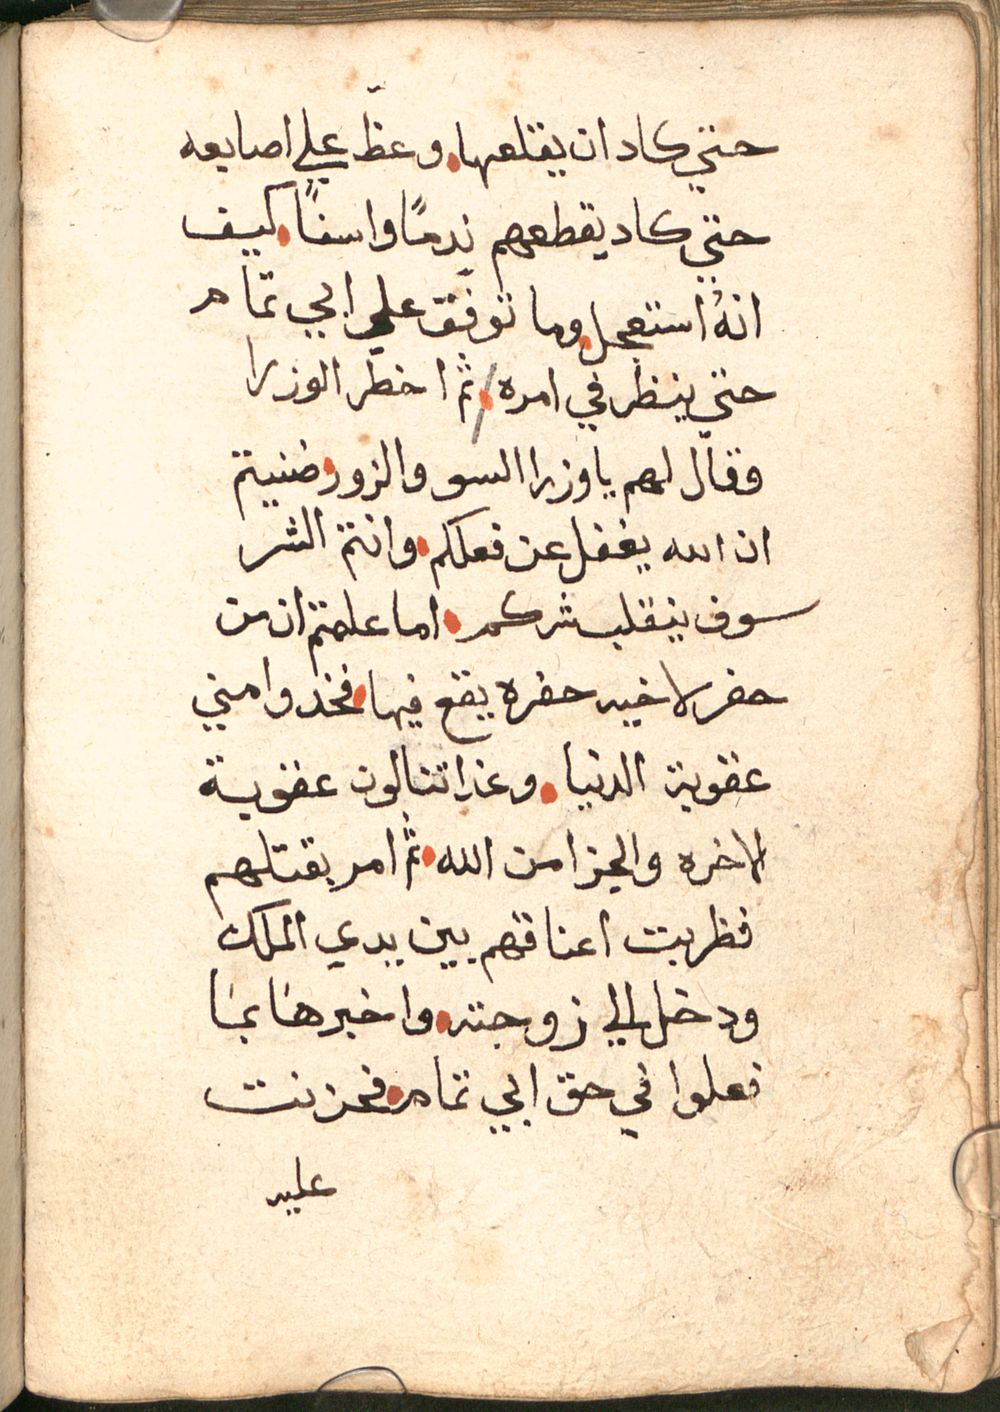 حتي كاد ان يقتلعها وعظّ علي اصابعه
حتي كاد يقطعهم ندمًا واسفًا كيف
انهُ استعجل وما توفّق علي ابي تمام
حتي ينظر في امره ثم اخطر الوزرا
وقال لهم يا وزرا السو والزور ضنيتم
ان الله يغفل عن فعلكم وانتم الشر
سوف ينقلب شركم اما علمتم ان من
حفر لاخيه حفره يقع فيها فخدوا مني
عقوبة الدنيا وغدا تنالون عقوبة
الاخره والجزا من الله ثم امر بقتلهم
فظربت اعناقهم بين يدي الملك
ودخل الي زوجته واخبرها بما
فعلوا في حق ابي تمام فحزنت
عليه